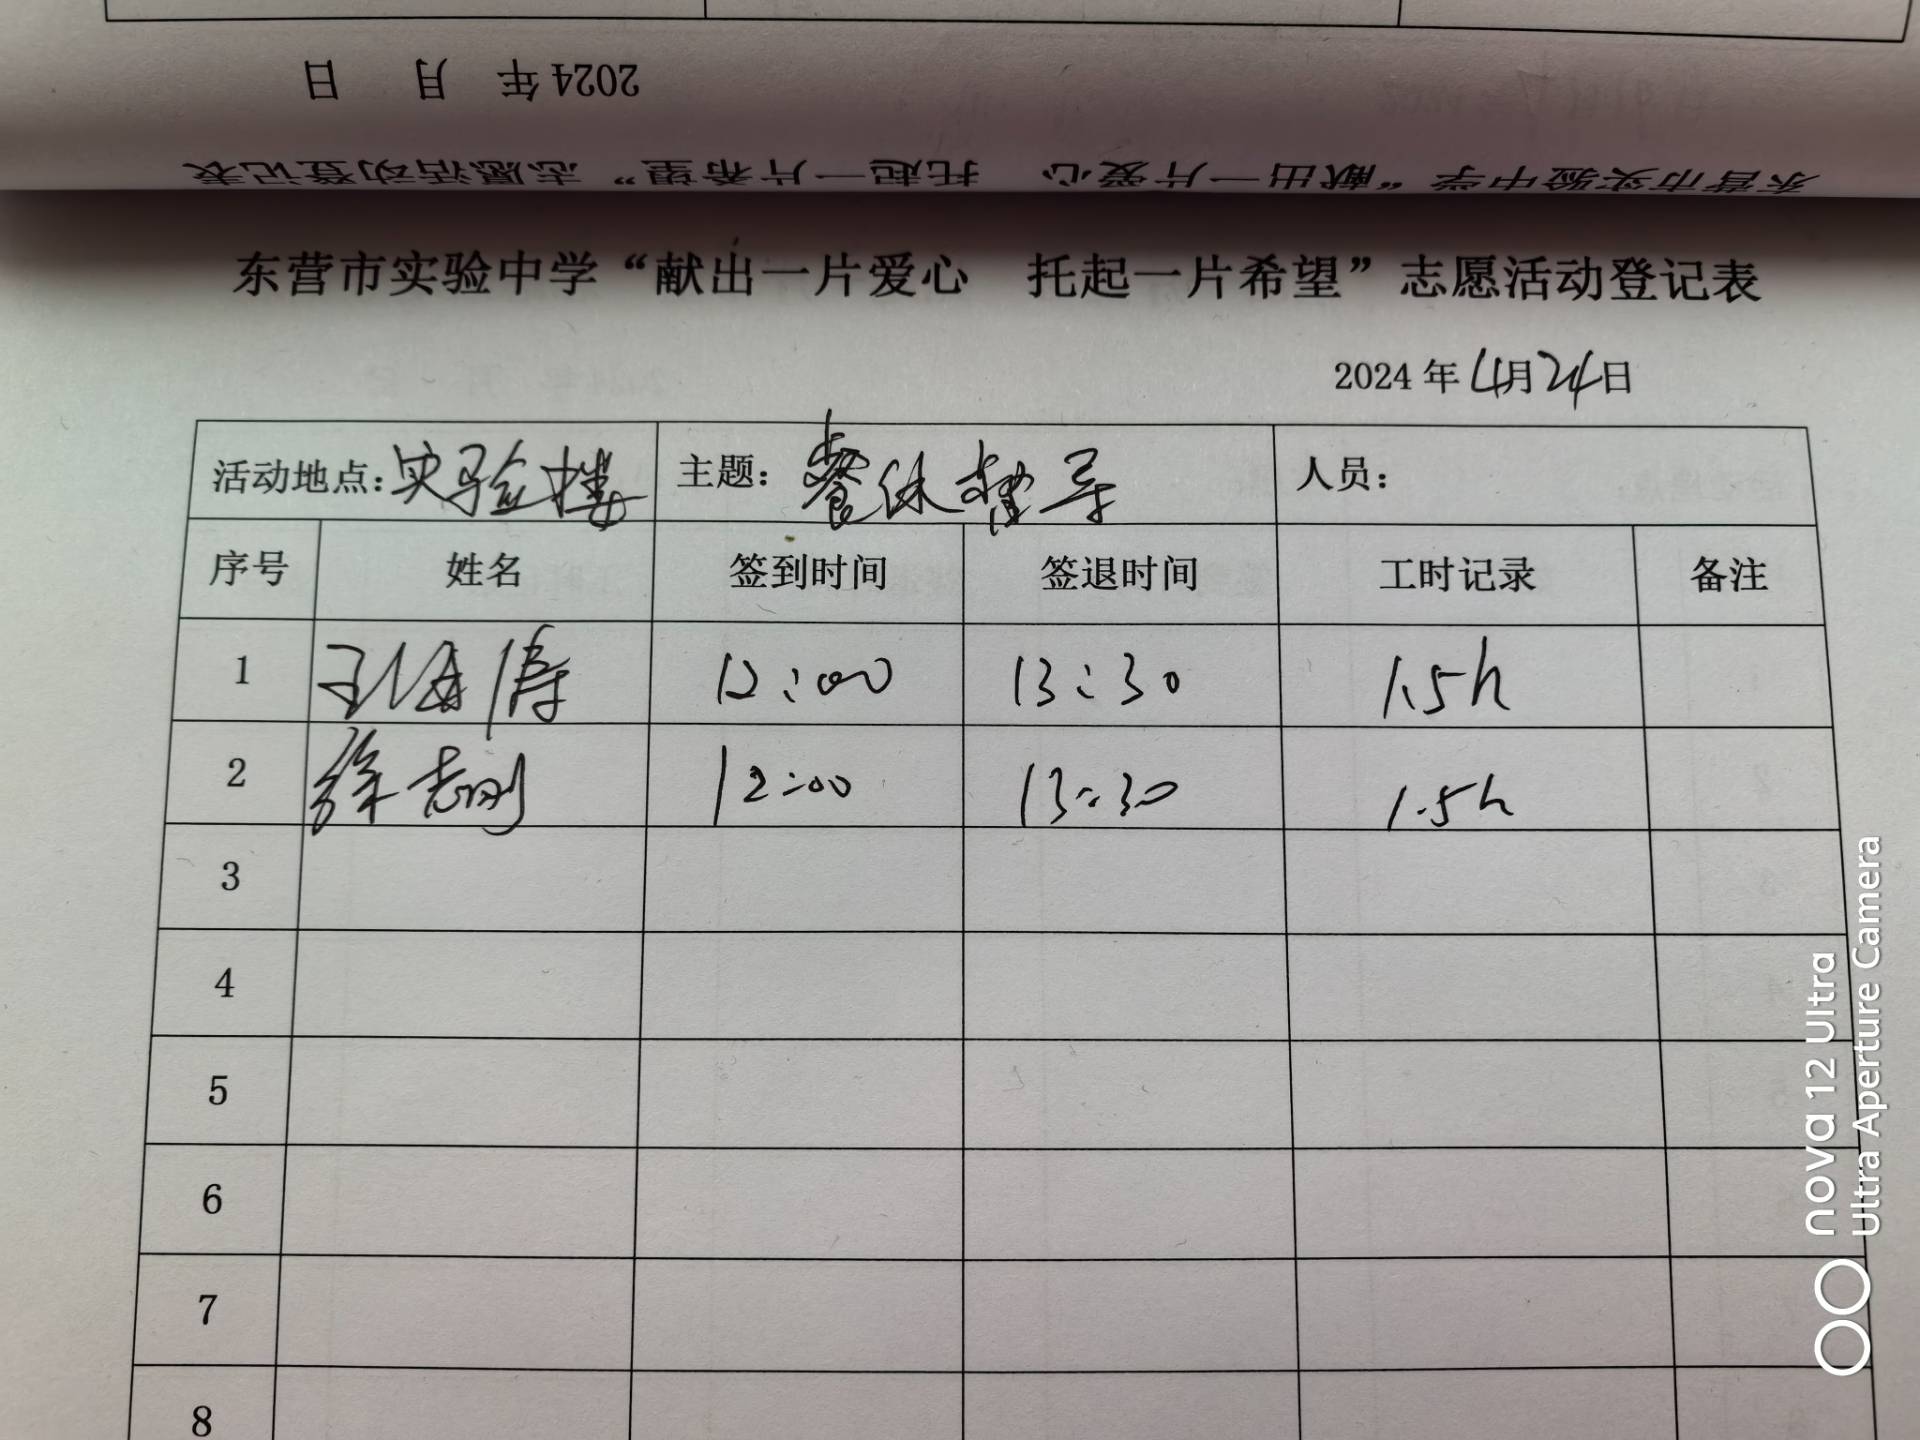 2024年 月 日
东营市实验中学“献出一片爱心 托起一片希望”志愿活动登记表
东营市实验中学“献出一片爱心 托起一片希望”志愿活动登记表
2024年4月24日
活动地点：实验楼 主题：餐休辅导 人员：
序号 姓名 签到时间 签退时间 工时记录 备注
1 王海涛 12:00 13:30 1.5h
2 徐志刚 12:00 13:30 1.5h
3
4
5
6
7
8
nova 12 Ultra
Ultra Aperture Camera